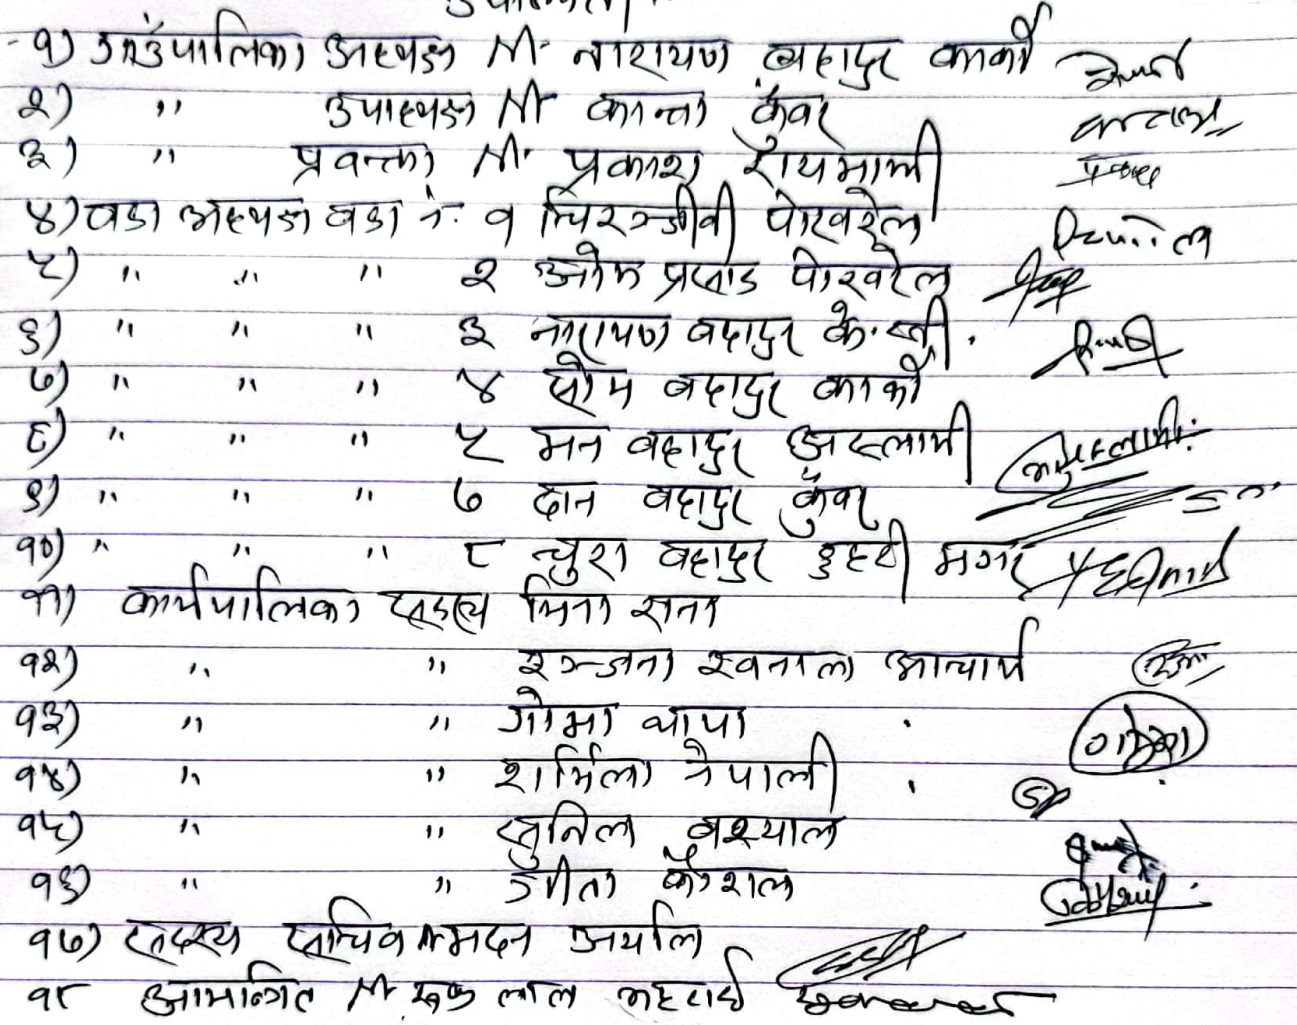 उपस्थिती
१) गाउँपालिका अध्यक्ष श्री नारायण बहादुर कार्की
२) " उपाध्यक्ष श्री कान्ता कुँवर
३) " प्रवक्ता श्री प्रकाश रायमाझी
४) वडा अध्यक्ष वडा नं. १ चिरञ्जीवी पोखरेल
५) " " " २ ओम प्रसाद पोखरेल
६) " " " ३ नारायण बहादुर के.सी.
७) " " " ४ सोम बहादुर कार्की
८) " " " ५ मन बहादुर अस्लामी
९) " " " ७ दान बहादुर कुँवर
१०) " " " ८ चुरा बहादुर मगर
११) कार्यपालिका सदस्य मिना राना
१२) " " रञ्जना खनाल आचार्य
१३) " " गोमा थापा
१४) " " शर्मिला नेपाली
१५) " " सुनिल बश्याल
१६) " " गीता कौशल
१७) सदस्य सचिव मदन अर्याल
१८ आमन्त्रित श्री लाल भट्टराई